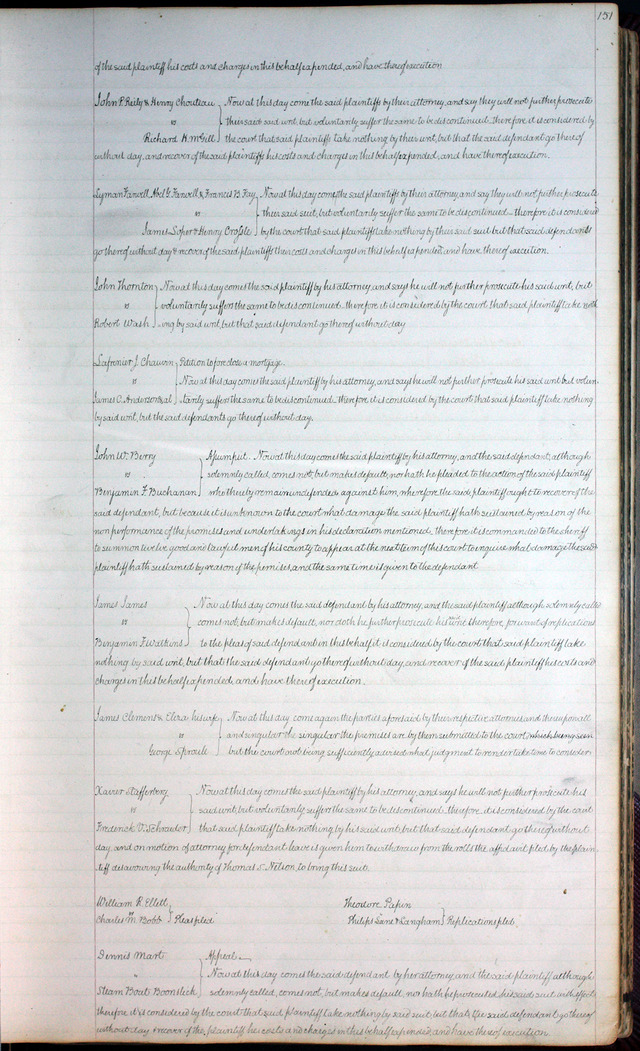 151
of the said plaintiff his costs and charges in this behalf expended, and have thereof execution
John P. Reily & Henry Chouteau Now at this day come the said plaintiffs by their attorney, and say they will not further prosecute
vs their said writ, but voluntarily suffer the same to be discontinued. therefore it is considered by
Richard H. McGill the court that said plaintiffs take nothing by their writ, but that the said defendant go thereof
without day, and recover of the said plaintiffs his costs and charges in this behalf expended, and have thereof execution.
Lyman Farwell Abel G. Farwell & Francis B. Fay Now at this day come the said plaintiffs by their attorney and say they will not further prosecute
vs their said suit, but voluntarily suffer the same to be discontinued. therefore it is considered
James Loper & Henry by the court that said plaintiffs take nothing by their said suit but that said defendants
go thereof without day & recover of the said plaintiffs their costs and charges in this behalf expended, and have thereof execution.
John Thornton Now at this day comes the said plaintiff by his attorney, and says he will not further prosecute his said writ, but
vs voluntarily suffers the same to be discontinued. therefore it is considered by the court that said plaintiff take noth
Robert Wash -ing by said writ, but that said defendant go thereof without day
J. Chauvin Petition to foreclose a mortgage.
vs Now at this day comes the said plaintiff by his attorney, and says he will not further prosecute his said writ but volun
James C. Anderson & al tarily suffer the same to be discontinued. therefore it is considered by the court that said plaintiff take nothing
by said writ, but the said defendants go thereof without day.
John W. Berry Assumpsit. Now at this day comes the said plaintiff by his attorney, and the said defendant, although
vs solemnly called, comes not, but makes default, nor hath he pleaded to the action of the said plaintiff
Benjamin F. Buchanan who thereby remain undefended against him, wherefore the said plaintiff ought to recover of the
said defendant, but because it is unknown to the court what damage the said plaintiff hath sustained by reason of the
non performance of the promises and undertakings in his declaration mentioned, therefore it is commanded to the sheriff
to summon twelve good and lawful men of his county to appear at the next term of this court to enquire what damage the said
plaintiff hath sustained by reason of the premises, and the same time is given to the defendant
James James Now at this day comes the said defendant by his attorney, and the said plaintiff although solemnly called
vs comes not, but makes default, nor doth he further prosecute his writ, therefore, for want of replications
Benjamin F. Watkins to the pleas of said defendant in this behalf, it is considered by the court that said plaintiff take
nothing by said writ, but that the said defendant go thereof without day, and recover of the said plaintiff his costs and
charges in this behalf expended, and have thereof execution.
James Clement & his wife Now at this day come again the parties aforesaid by their respective attornies and thereupon all
vs and singular the singular the premises are by them submitted to the court which being seen
George Sproule but the court not being sufficiently advised what judgment to render take time to consider
Xavier Now at this day comes the said plaintiff by his attorney, and says he will not further prosecute his
vs said writ but voluntarily suffer the same to be discontinued. therefore it is considered by the court
Frederick that said plaintiff take nothing by his said writ, but that said defendant go thereof without
day. and on motion of attorney for defendant leave is given him to withdraw from the rolls the affidavit filed by the plain
tiff disavowing the authority of Thomas S. Nelson to bring this suit.
William R. Ellett Theodore Papin
vs vs
Charles M. Bobb Pleas filed Philips Lane & Langham Replications filed
Dennis Mart Appeal.
vs Now at this day comes the said defendant by her attorney, and the said plaintiff although
Steam Boat Boonslick solemnly called, comes not, but makes default, nor hath he prosecuted his said suit with effect
therefore it is considered by the court that said plaintiff take nothing by said suit, but that the said defendant go thereof
without day & recover of the plaintiff he costs and charges in this behalf expended, and have thereof execution.